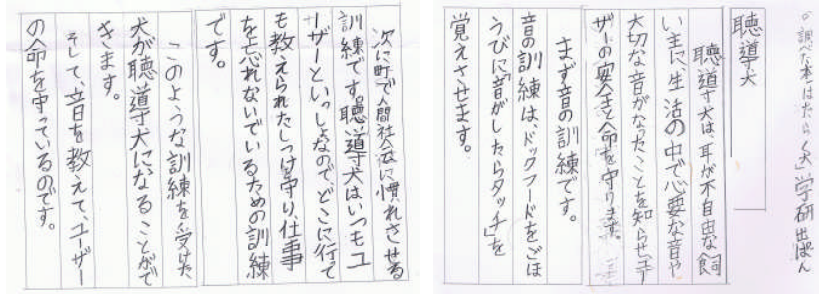 の調べた本「はたらく犬」学研出ぱん
聴導犬
聴導犬は、耳が不自由な飼
い主に、生活の中で心要な音や
大切な音がなったことを知らせ、ユー
ザーの安全と命を守ります。
まず音の訓練です。
音の訓練は、ドックフードをごほ
うびに「音がしたらタッチ」を
覚えさせます。
次に町で人間社会に慣れさせる
訓練です。聴導犬はいつもユ
ーザーといっしょなのでどこに行って
も教えられたしつけ守り、仕事
を忘れないでいるための訓練
です。
このような訓練を受けた
犬が聴導犬になることがで
きます。
そして、音を教えて、ユーザー
の命を守っているのです。